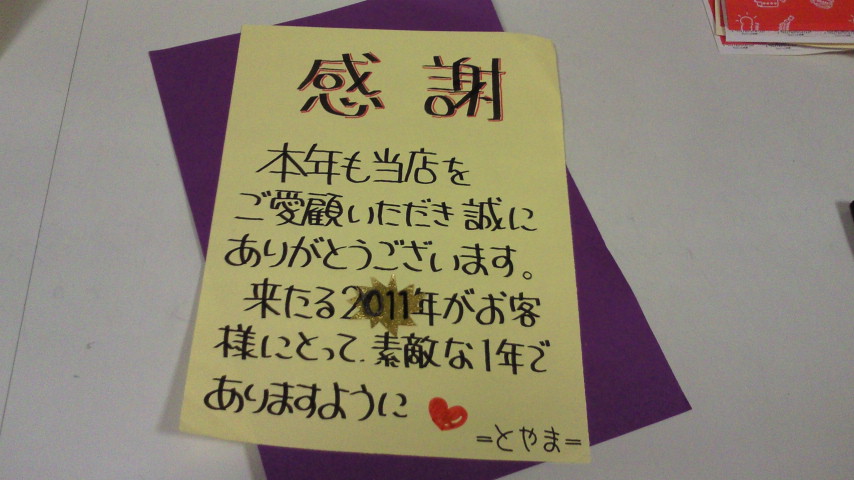 感謝
本年も当店を
ご愛顧いただき誠に
ありがとうございます。
来たる2011年がお客
様にとって、素敵な1年で
ありますように
=とやま=